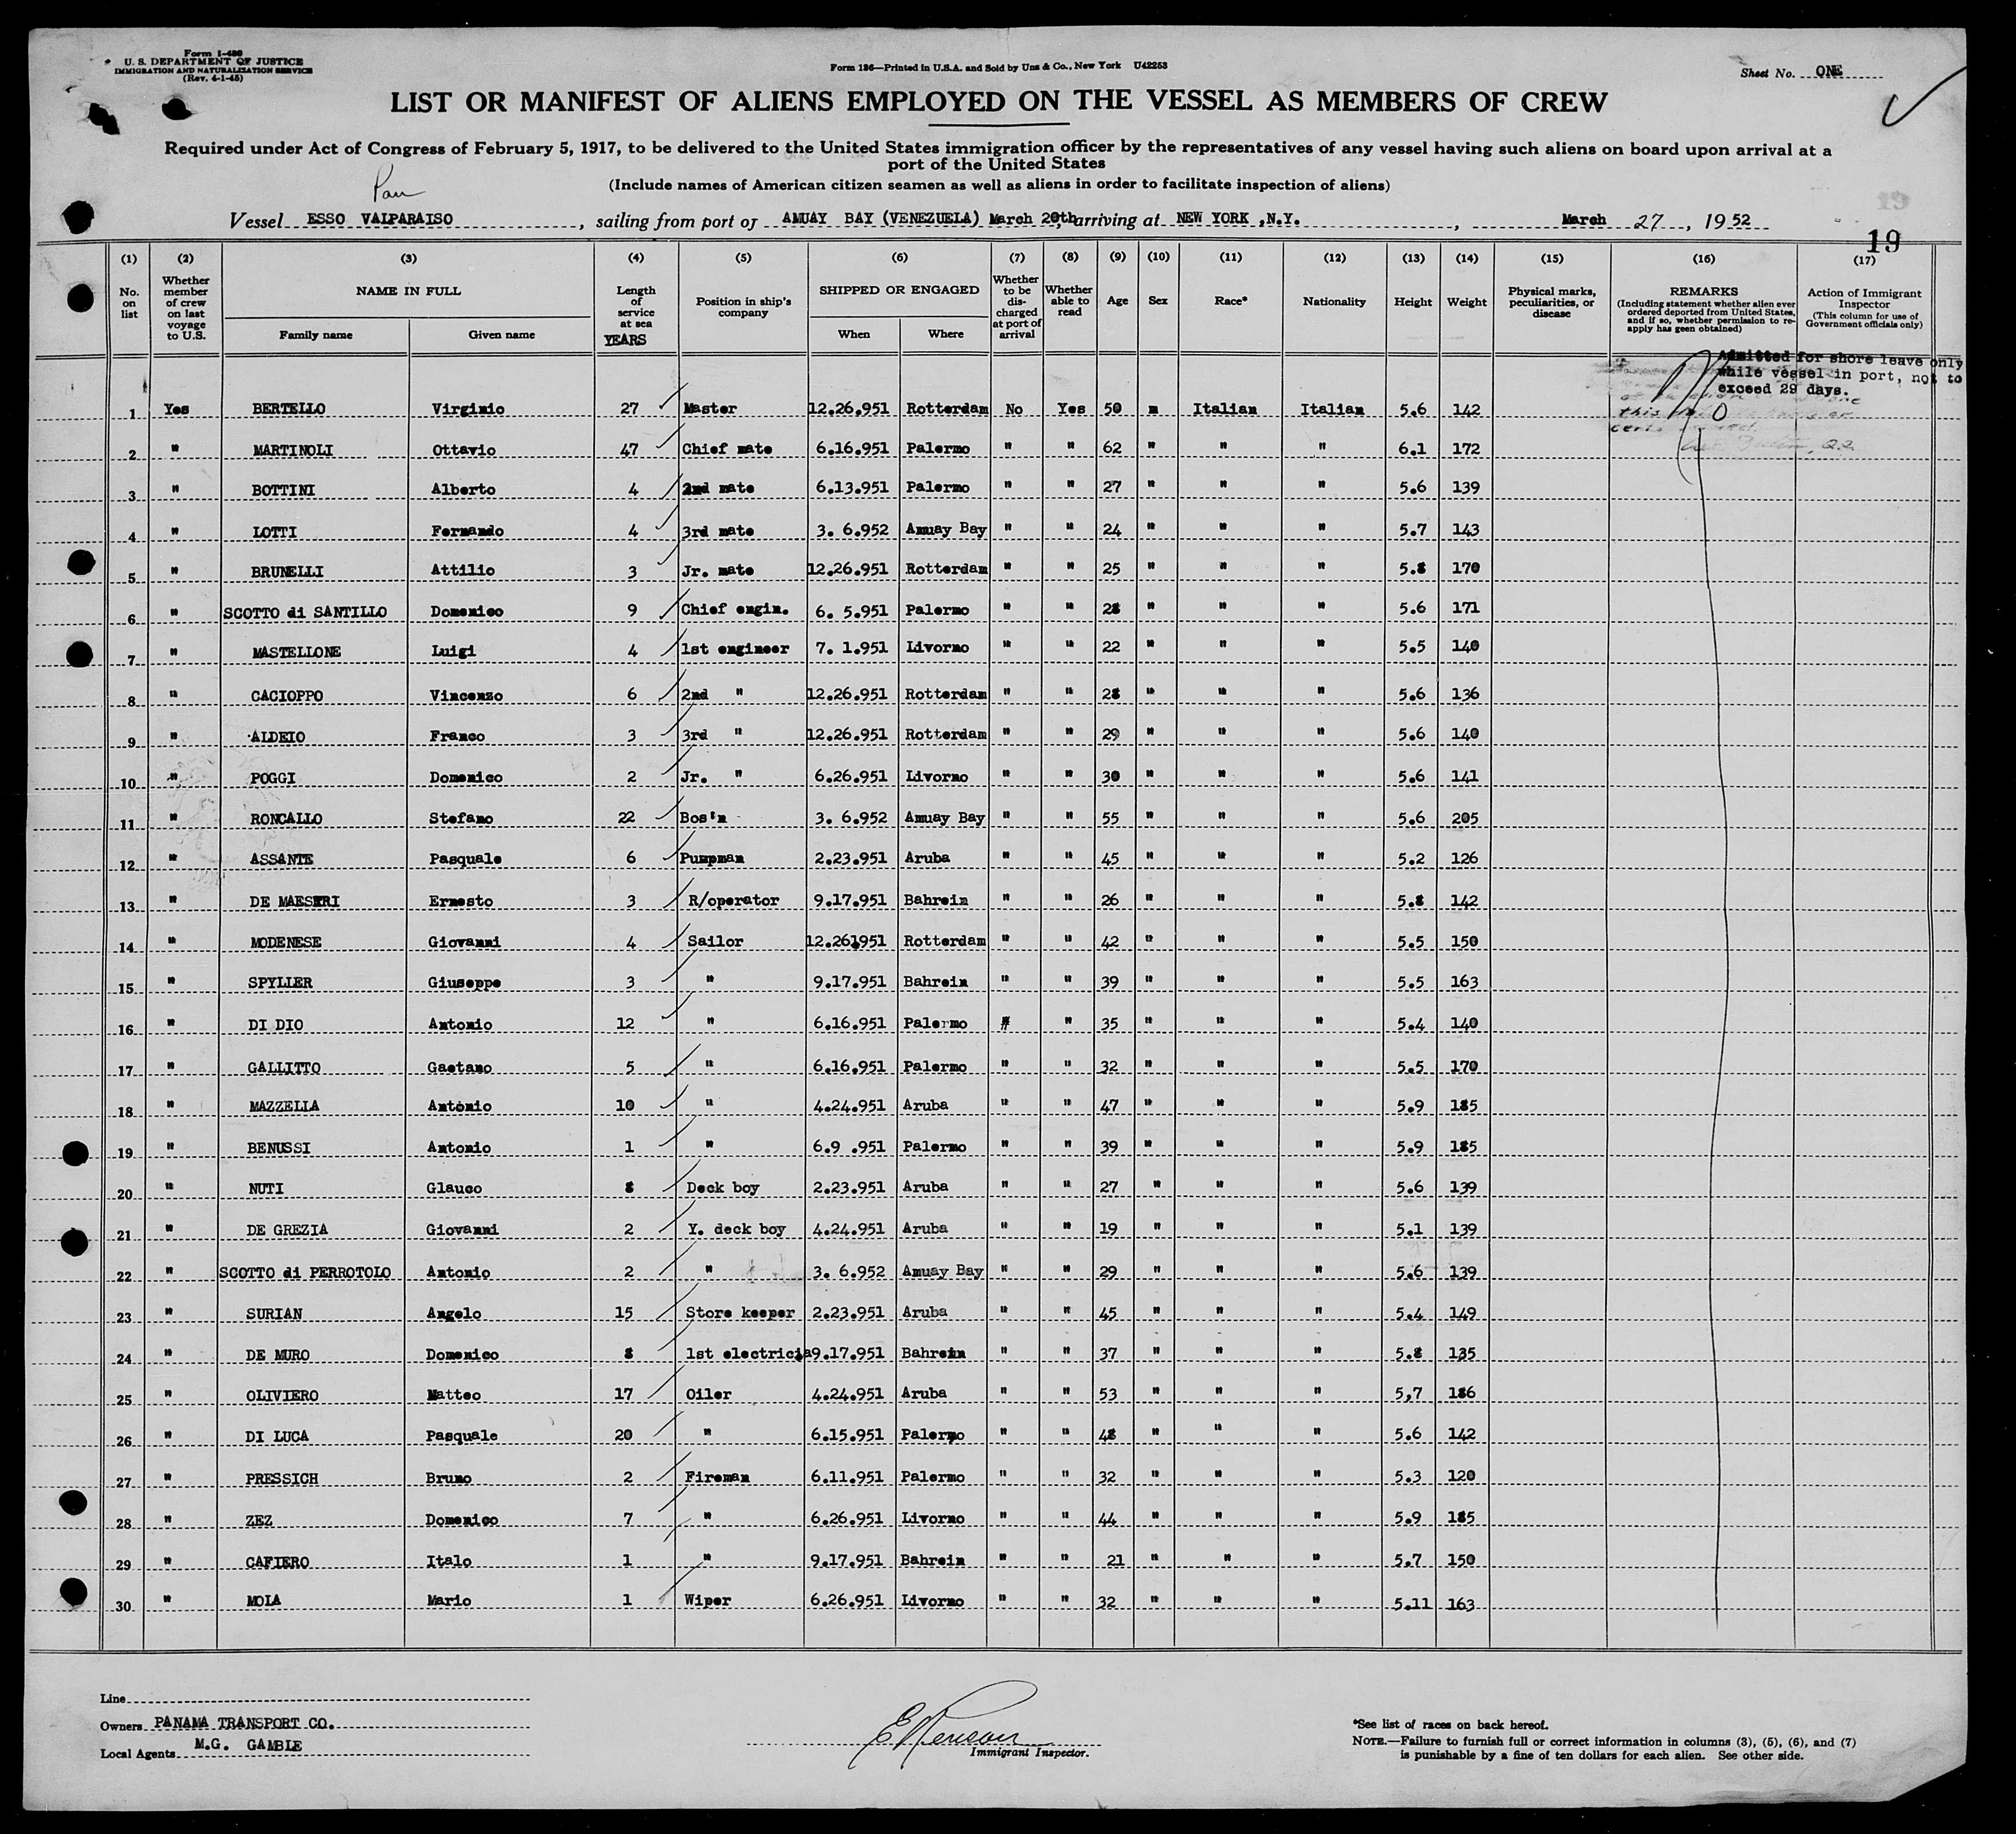 Form I-480
U. S. DEPARTMENT OF JUSTICE
IMMIGRATION AND NATURALIZATION SERVICE
(Rev. 4-1-45)
Form 186—Printed in U.S.A. and Sold by Unz & Co., New York U42253
Sheet No. ONE
LIST OR MANIFEST OF ALIENS EMPLOYED ON THE VESSEL AS MEMBERS OF CREW
Required under Act of Congress of February 5, 1917, to be delivered to the United States immigration officer by the representatives of any vessel having such aliens on board upon arrival at a
port of the United States
(Include names of American citizen seamen as well as aliens in order to facilitate inspection of aliens)
Pan
Vessel ESSO VALPARAISO, sailing from port of AMUAY BAY (VENEZUELA) March 20th, arriving at NEW YORK ,N.Y., March 27, 1952
19
(1) (2) (3) (4) (5) (6) (7) (8) (9) (10) (11) (12) (13) (14) (15) (16) (17)
No. on list
Whether member of crew on last voyage to U.S.
NAME IN FULL
Family name Given name
Length of service at sea
YEARS
Position in ship's company
SHIPPED OR ENGAGED
When Where
Whether to be discharged at port of arrival
Whether able to read
Age
Sex
Race*
Nationality
Height
Weight
Physical marks, peculiarities, or disease
REMARKS
(Including statement whether alien ever ordered deported from United States, and if so, whether permission to reapply has geen obtained)
Action of Immigrant Inspector
(This column for use of Government officials only)
Admitted for shore leave only
while vessel in port, not to
exceed 29 days.
1 Yes BERTELLO Virginio 27 Master 12.26.951 Rotterdam No Yes 50 m Italian Italian 5.6 142
2 " MARTINOLI Ottavio 47 Chief mate 6.16.951 Palermo " " 62 " " " 6.1 172
3 " BOTTINI Alberto 4 2nd mate 6.13.951 Palermo " " 27 " " " 5.6 139
4 " LOTTI Fernando 4 3rd mate 3. 6.952 Amuay Bay " " 24 " " " 5.7 143
5 " BRUNELLI Attilio 3 Jr. mate 12.26.951 Rotterdam " " 25 " " " 5.8 170
6 " SCOTTO di SANTILLO Domenico 9 Chief engin. 6. 5.951 Palermo " " 28 " " " 5.6 171
7 " MASTELLONE Luigi 4 1st engineer 7. 1.951 Livorno " " 22 " " " 5.5 140
8 " CACIOPPO Vincenzo 6 2nd " 12.26.951 Rotterdam " " 28 " " " 5.6 136
9 " ALDEIO Franco 3 3rd " 12.26.951 Rotterdam " " 29 " " " 5.6 140
10 " POGGI Domenico 2 Jr. " 6.26.951 Livorno " " 30 " " " 5.6 141
11 " RONCALLO Stefano 22 Bos'n 3. 6.952 Amuay Bay " " 55 " " " 5.6 205
12 " ASSANTE Pasquale 6 Pumpman 2.23.951 Aruba " " 45 " " " 5.2 126
13 " DE MAESTRI Ernesto 3 R/operator 9.17.951 Bahrein " " 26 " " " 5.8 142
14 " MODENESE Giovanni 4 Sailor 12.26.951 Rotterdam " " 42 " " " 5.5 150
15 " SPYLLER Giuseppe 3 " 9.17.951 Bahrein " " 39 " " " 5.5 163
16 " DI DIO Antonio 12 " 6.16.951 Palermo " " 35 " " " 5.4 140
17 " GALLITTO Gaetano 5 " 6.16.951 Palermo " " 32 " " " 5.5 170
18 " MAZZELLA Antonio 10 " 4.24.951 Aruba " " 47 " " " 5.9 185
19 " BENUSSI Antonio 1 " 6.9 .951 Palermo " " 39 " " " 5.9 185
20 " NUTI Glauco 8 Deck boy 2.23.951 Aruba " " 27 " " " 5.6 139
21 " DE GREZIA Giovanni 2 Y. deck boy 4.24.951 Aruba " " 19 " " " 5.1 139
22 " SCOTTO di PERROTOLO Antonio 2 " 3. 6.952 Amuay Bay " " 29 " " " 5.6 139
23 " SURIAN Angelo 15 Store keeper 2.23.951 Aruba " " 45 " " " 5.4 149
24 " DE MURO Domenico 8 1st electricia 9.17.951 Bahrein " " 37 " " " 5.8 135
25 " OLIVIERO Matteo 17 Oiler 4.24.951 Aruba " " 53 " " " 5,7 186
26 " DI LUCA Pasquale 20 " 6.15.951 Palermo " " 48 " " " 5.6 142
27 " PRESSICH Bruno 2 Fireman 6.11.951 Palermo " " 32 " " " 5.3 120
28 " ZEZ Domenico 7 " 6.26.951 Livorno " " 44 " " " 5.9 185
29 " CAFIERO Italo 1 " 9.17.951 Bahrein " " 21 " " " 5.7 150
30 " MOLA Mario 1 Wiper 6.26.951 Livorno " " 32 " " " 5.11 163
Line
Owners PANAMA TRANSPORT CO.
Local Agents M.G. GAMBLE
Immigrant Inspector.
*See list of races on back hereof.
NOTE.—Failure to furnish full or correct information in columns (3), (5), (6), and (7)
is punishable by a fine of ten dollars for each alien. See other side.